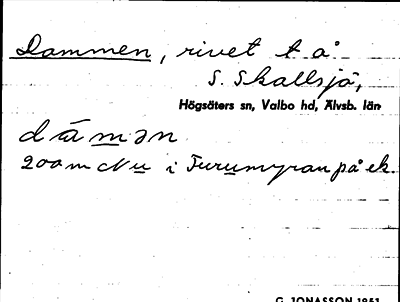 Dammen, rivet t å
S. Skallsjö,
Högsäters sn, Valbo hd, Älvsb. län
dámən
200 m N u i Furumyran på ek.
G. JONASSON 1951